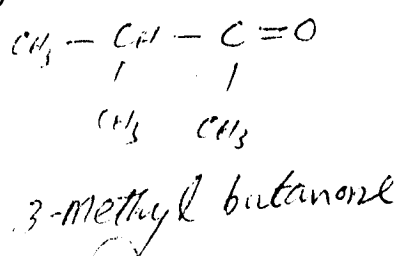 CH₃ — CH — C = O
CH₃ CH₃
3-Methyl butanone